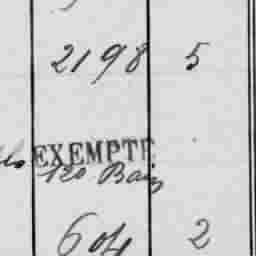 2198 5
EXEMPTE
120 Bain
604 2